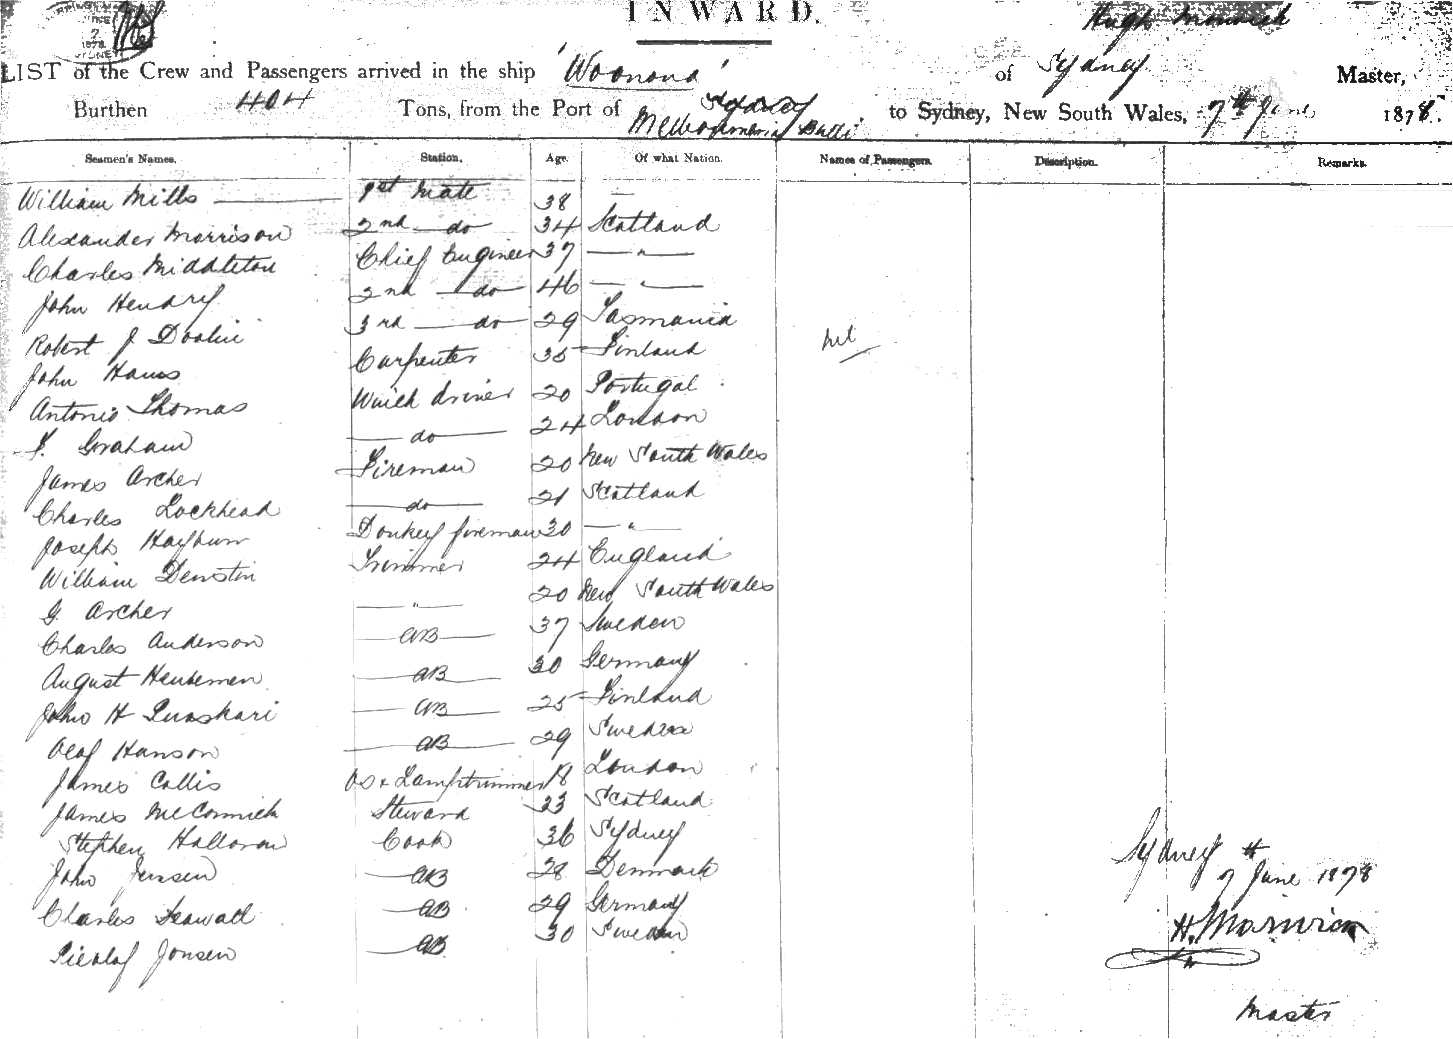 INWARD.
Hugh
LIST of the Crew and Passengers arrived in the ship 'Woonona' of Sydney Master,
Burthen 404 Tons, from the Port of Bulli to Sydney, New South Wales, 7th June 1878.
Seamen's Names. Station. Age. Of what Nation. Names of Passengers. Description. Remarks.
William Mills 1st Mate 38 —
Alexander Morrison 2nd do 34 Scotland
Charles Middleton Chief Engineer 37 "
John Hendry 2nd do 46 "
Robert J 3rd do 29 Tasmania
nil
John Carpenter 35 Finland
Antonio Thomas Winch driver 20 Portugal
Graham do 24 London
James Archer Fireman 20 New South Wales
Charles Lockhead do 21 Scotland
Joseph Donkey fireman 30 "
William Trimmer 24 England
G. Archer " 20 New South Wales
Charles Anderson AB 37 Sweden
August AB 30 Germany
John H AB 25 Finland
Olaf Hanson AB 29 Sweden
James Collis OS & Lamptrimmer 18 London
James McCormick Steward 33 Scotland
Stephen Halloran Cook 36 Sydney
John Jensen AB 28 Denmark
Charles AB 29 Germany
Jonsen AB 30 Sweden
Sydney
7th June 1878
H.
Master